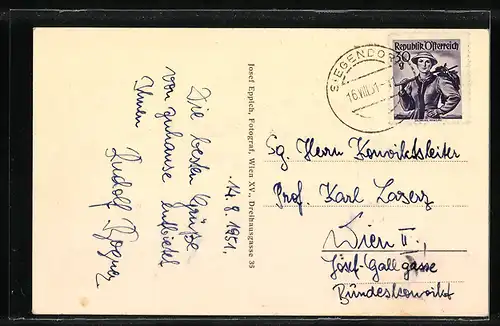 Die besten Grüße
von zuhause entbietet
Ihnen
Rudolf
14.8.1951.
Josef Eppich, Fotograf, Wien XV., Dreihausgasse 38
SIEGENDORF
16.VIII.51
Republik Österreich
30
g
Sg. Herrn Konviktsleiter
Prof. Karl
Wien II.,
Josef-Gallgasse
Bundeskonvikt